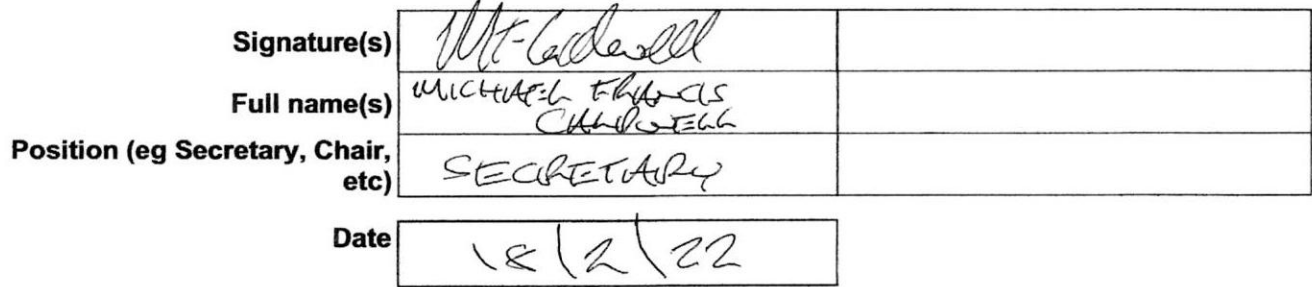 Signature(s) MF Caldwell
Full name(s) MICHAEL FRANCIS
CALDWELL
Position (eg Secretary, Chair,
etc) SECRETARY
Date 18/2/22